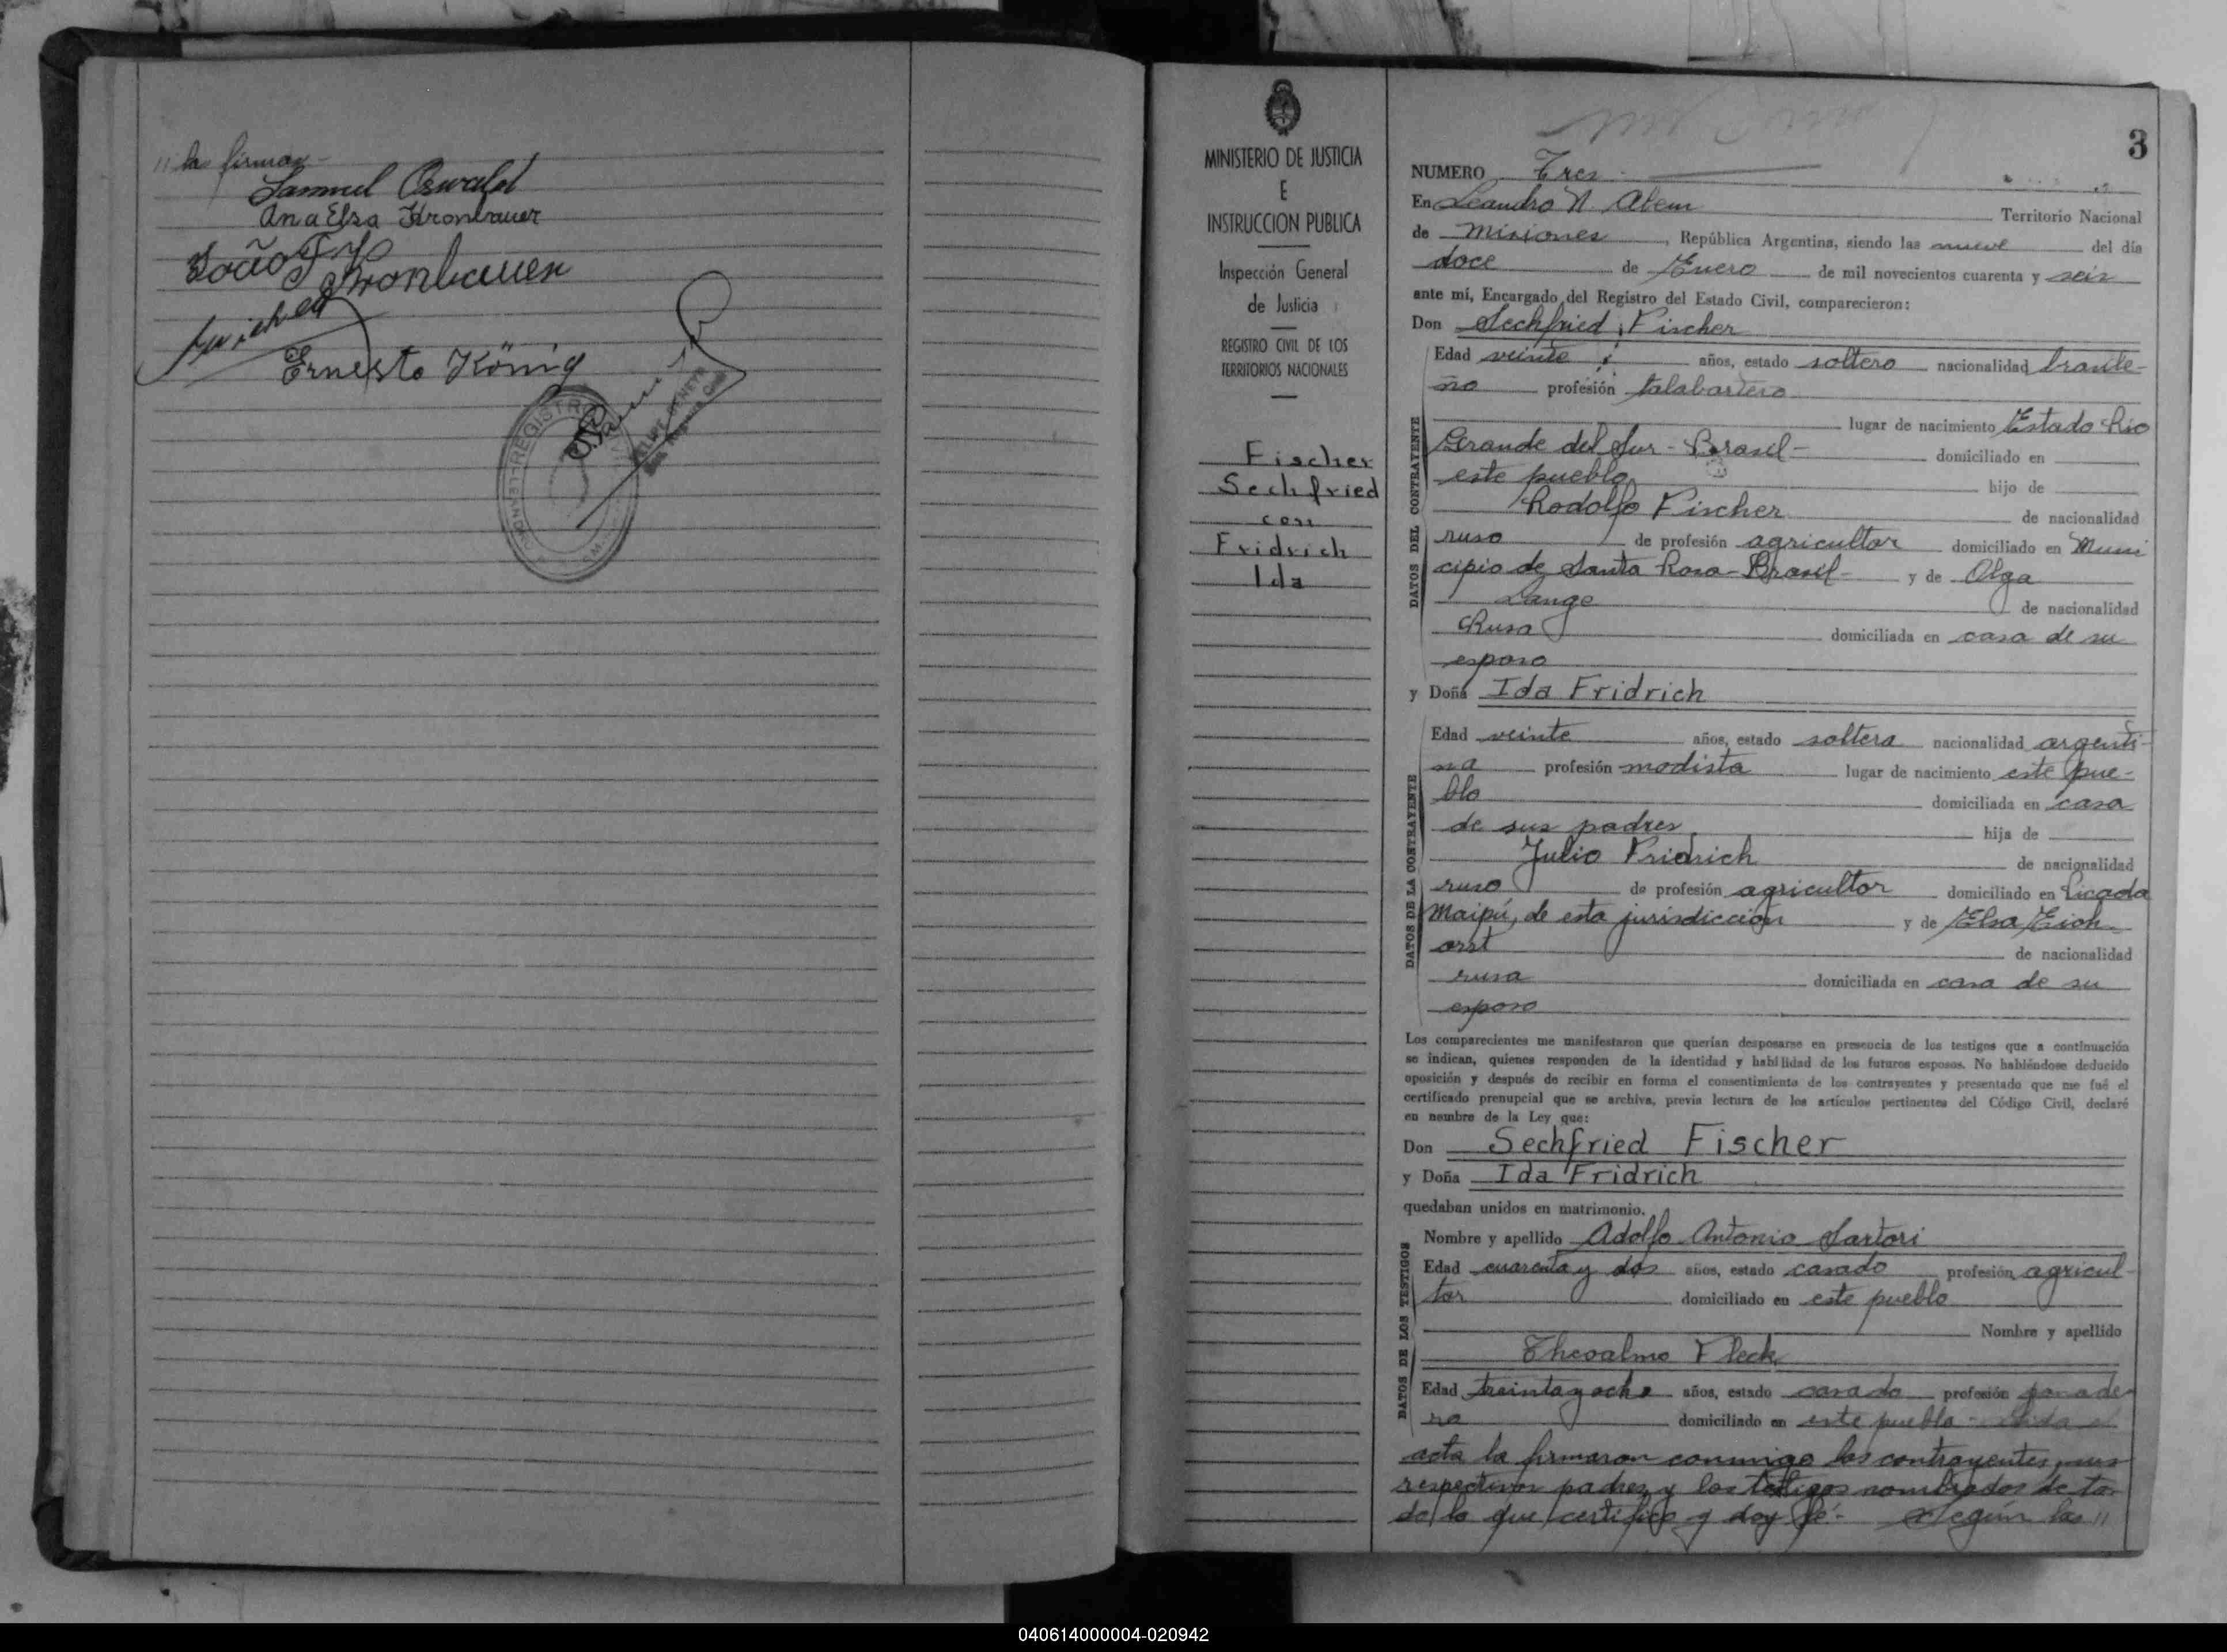 " las firmas -
Samuel Oswald
Ana Elsa Kronbauer
João
Kronbauer
Ernesto König
REGISTRO
MINISTERIO DE JUSTICIA
E
INSTRUCCION PUBLICA
Inspección General
de Justicia
REGISTRO CIVIL DE LOS
TERRITORIOS NACIONALES
Fischer
Sechfried
con
Fridrich
Ida
3
NUMERO Tres
En Leandro N. Alem Territorio Nacional
de Misiones, República Argentina, siendo las nueve del día
doce de Enero de mil novecientos cuarenta y seis
ante mí, Encargado del Registro del Estado Civil, comparecieron:
Don Sechfried Fischer
DATOS DEL CONTRAYENTE
Edad veinte años, estado soltero nacionalidad brasile-
ño profesión talabartero
lugar de nacimiento Estado Rio
Grande del Sur - Brasil - domiciliado en
este pueblo hijo de
Rodolfo Fischer de nacionalidad
ruso de profesión agricultor domiciliado en Muni
cipio de Santa Rosa - Brasil - y de Olga
Lange de nacionalidad
Rusa domiciliada en casa de su
esposo
y Doña Ida Fridrich
DATOS DE LA CONTRAYENTE
Edad veinte años, estado soltera nacionalidad argenti-
na profesión modista lugar de nacimiento este pue-
blo domiciliada en casa
de sus padres hija de
Julio Fridrich de nacionalidad
ruso de profesión agricultor domiciliado en Picada
Maipú, de esta jurisdicción y de Elsa Eich-
orst de nacionalidad
rusa domiciliada en casa de su
esposo
Los comparecientes me manifestaron que querían desposarse en presencia de los testigos que a continuación
se indican, quienes responden de la identidad y habilidad de los futuros esposos. No habiéndose deducido
oposición y después de recibir en forma el consentimiento de los contrayentes y presentado que me fué el
certificado prenupcial que se archiva, previa lectura de los artículos pertinentes del Código Civil, declaré
en nombre de la Ley que:
Don Sechfried Fischer
y Doña Ida Fridrich
quedaban unidos en matrimonio.
DATOS DE LOS TESTIGOS
Nombre y apellido Adolfo Antonio Sartori
Edad cuarenta y dos años, estado casado profesión agricul-
tor domiciliado en este pueblo
Nombre y apellido
Theoalmo Fleck
Edad treinta y ocho años, estado casado profesión panade-
ro domiciliado en este pueblo - Leida el
acta la firmaron conmigo los contrayentes, sus
respectivos padres y los testigos nombrados de to-
do lo que certifico y doy fé. - Según las "
040614000004-020942